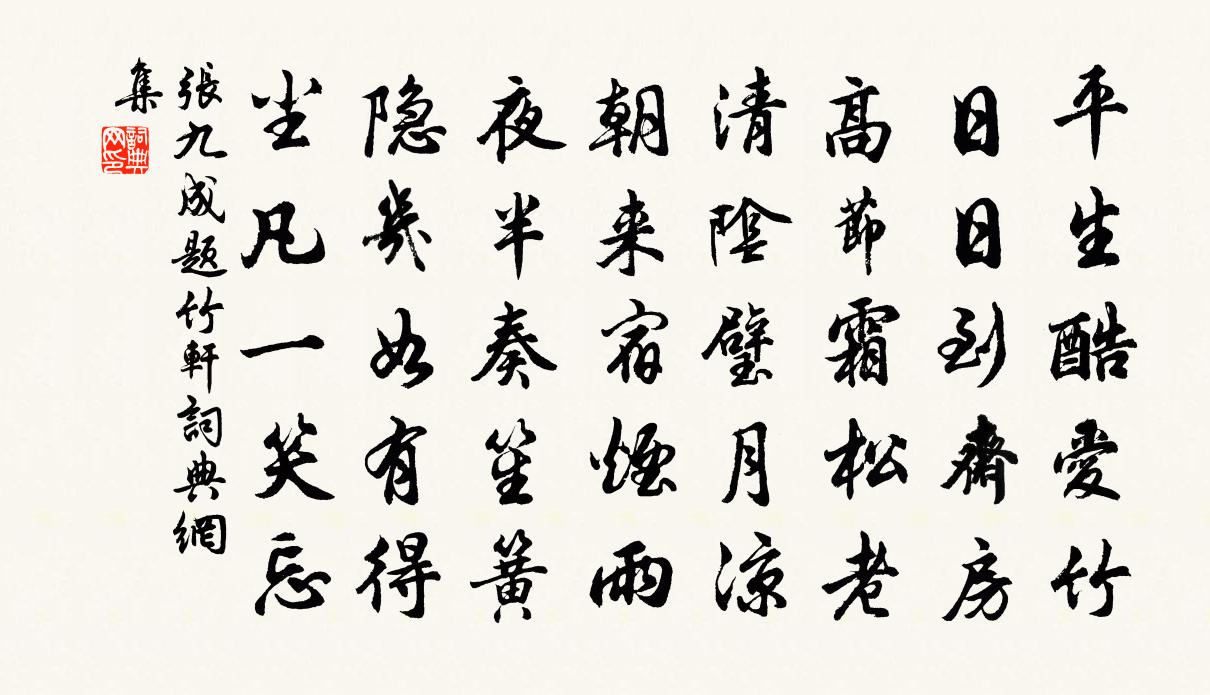 平生酷愛竹
日日到齋房
高節霜松老
清陰璧月涼
朝来宿煙雨
夜半奏笙簧
隐几如有得
尘凡一笑忘
張九成题竹軒詞典網
集
詞典
网印